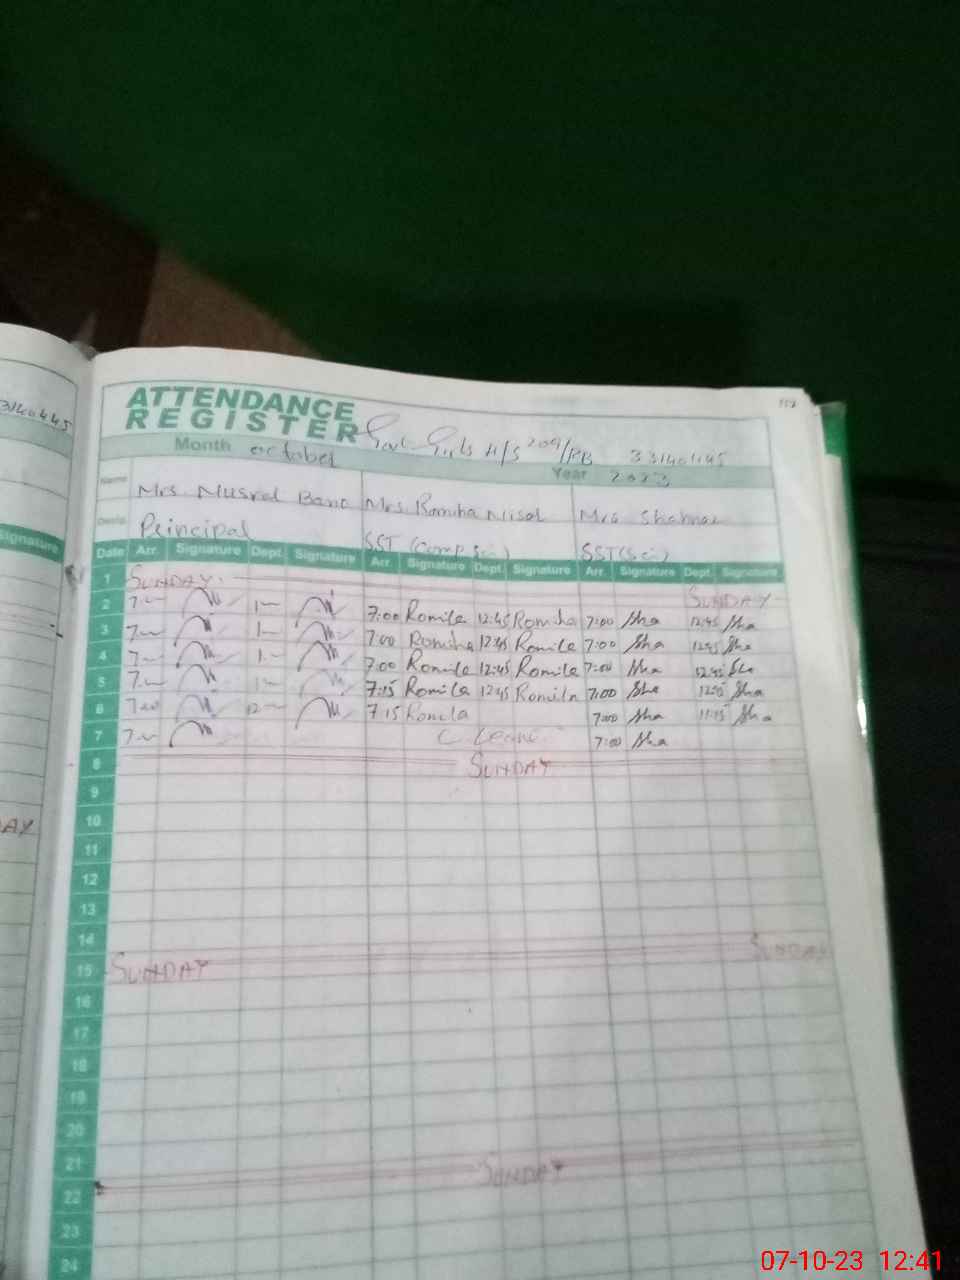 3140445
152
ATTENDANCE
REGISTER Govt Girls H/S 209/RB 33140445
Month october Year 2023
Name Mrs. Nusrat Bano Mrs. Romila Nisal Mrs Shahnaz
Desig. Principal SST (Comp. Sci) SST (Sci)
Signature
Date Arr. Signature Dept. Signature Arr. Signature Dept. Signature Arr. Signature Dept. Signature
1 SUNDAY SUNDAY
2 7:00 Romila 12:45 Romila 7:00 Sha 12:45 Sha
3 7:00 Romila 12:45 Romila 7:00 Sha 12:45 Sha
4 7:00 Romila 12:45 Romila 7:00 Sha 12:45 Sha
5 7:15 Romila 12:45 Romila 7:00 Sha 12:45 Sha
6 7:00 12 7:15 Romila 7:00 Sha 11:15 Sha
7 C. Leave 7:00 Sha
8 SUNDAY
9
10
11
12
13
14
15 SUNDAY SUNDAY
16
17
18
19
20
21
22 SUNDAY
23
24
DAY
07-10-23 12:41